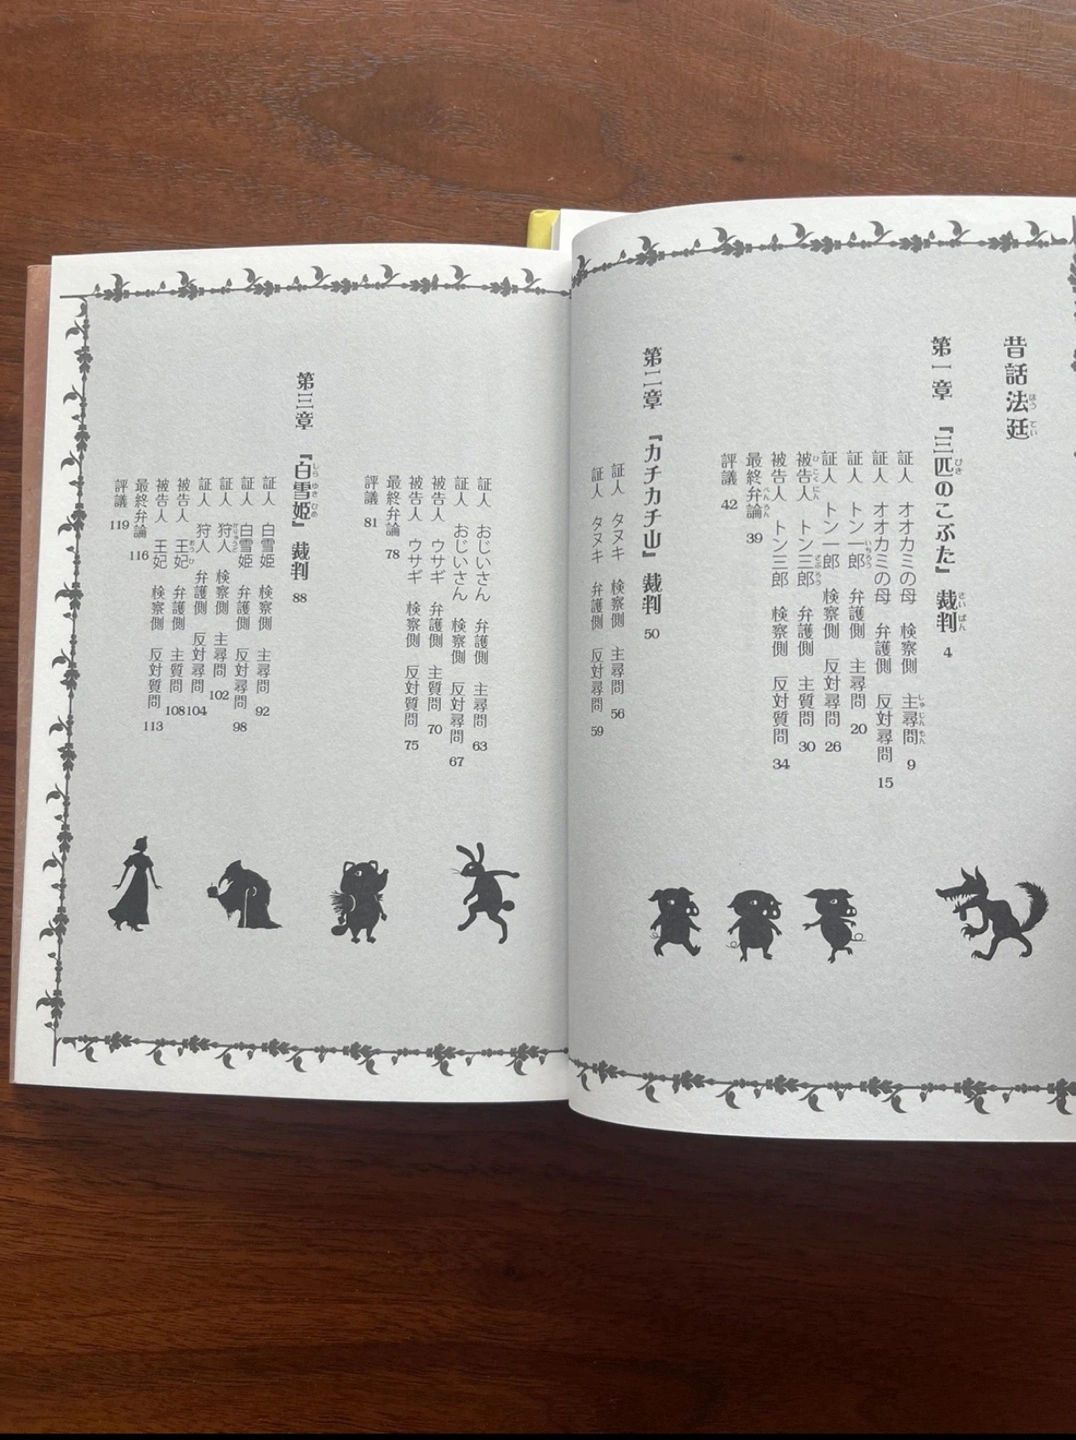 昔話法廷
第一章 『三匹のこぶた』裁判 4
証人 オオカミの母 検察側 主尋問 9
証人 オオカミの母 弁護側 反対尋問 15
証人 トン一郎 弁護側 主尋問 20
証人 トン一郎 検察側 反対尋問 26
被告人 トン三郎 弁護側 主質問 30
被告人 トン三郎 検察側 反対質問 34
最終弁論 39
評議 42
第二章 『カチカチ山』裁判 50
証人 タヌキ 検察側 主尋問 56
証人 タヌキ 弁護側 反対尋問 59
証人 おじいさん 弁護側 主尋問 63
証人 おじいさん 検察側 反対尋問 67
被告人 ウサギ 弁護側 主質問 70
被告人 ウサギ 検察側 反対質問 75
最終弁論 78
評議 81
第三章 『白雪姫』裁判 88
証人 白雪姫 検察側 主尋問 92
証人 白雪姫 弁護側 反対尋問 98
証人 狩人 検察側 主尋問 102
証人 狩人 弁護側 反対尋問 104
被告人 王妃 弁護側 主質問 108
被告人 王妃 検察側 反対質問 113
最終弁論 116
評議 119